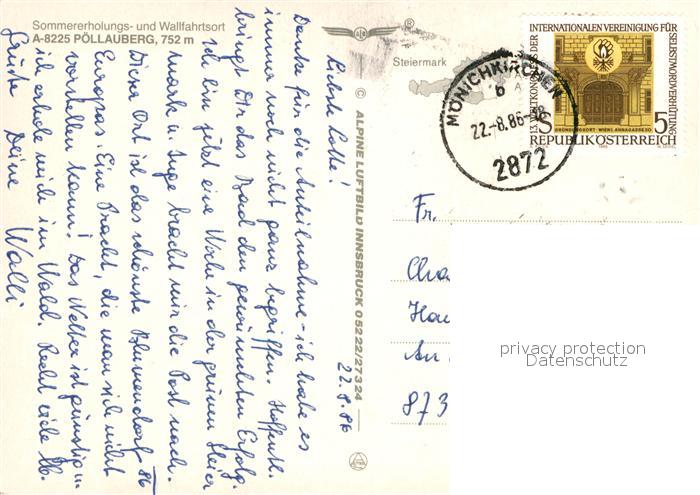 Sommererholungs- und Wallfahrtsort
A-8225 PÖLLAUBERG, 752 m
®
Steiermark
© ALPINE LUFTBILD INNSBRUCK 05222/27324
22.8.86
Liebste Lotte!
Danke für die Anteilnahme - ich habe es
immer noch nicht ganz begriffen. Hoffentl.
bringt Dir das Bad den gewünschten Erfolg.
Ich bin jetzt eine Woche in der grünen Steier
mark u. Inge bracht mir die Post nach.
Diese Ort ist das schönste Blumendorf 86
Europas. Eine Pracht, die man sich nicht
vorstellen kann! Das Wetter ist günstig u.
ich erhole mich im Wald. Recht viele lb.
Grüße Deine Walli
MÖNICHKIRCHEN
b
22.-8.86-18
2872
13. WELTKONGRESS DER INTERNATIONALEN VEREINIGUNG FÜR SELBSTMORDVERHÜTUNG
S 5
GRÜNDUNGSORT · WIEN I, ANNAGASSE 20
REPUBLIK ÖSTERREICH
Fr.
An
873
privacy protection
Datenschutz